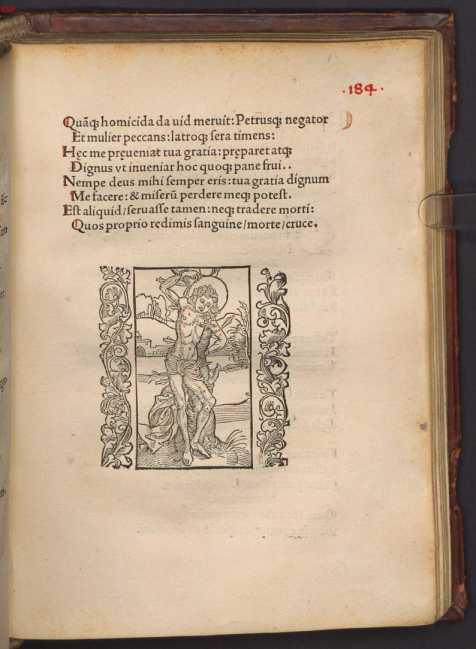 ·184·
Quãq; homicida da uid meruit: Petrusq; negator
Et mulier peccans: latroq; sera timens:
Hęc me pręueniat tua gratia: pręparet atq;
Dignus vt inueniar hoc quoq; pane frui..
Nempe deus mihi semper eris: tua gratia dignum
Me facere: & miserũ perdere meq; potest.
Est aliquid/seruasse tamen: neq; tradere morti:
Quos proprio redimis sanguine/morte/cruce.